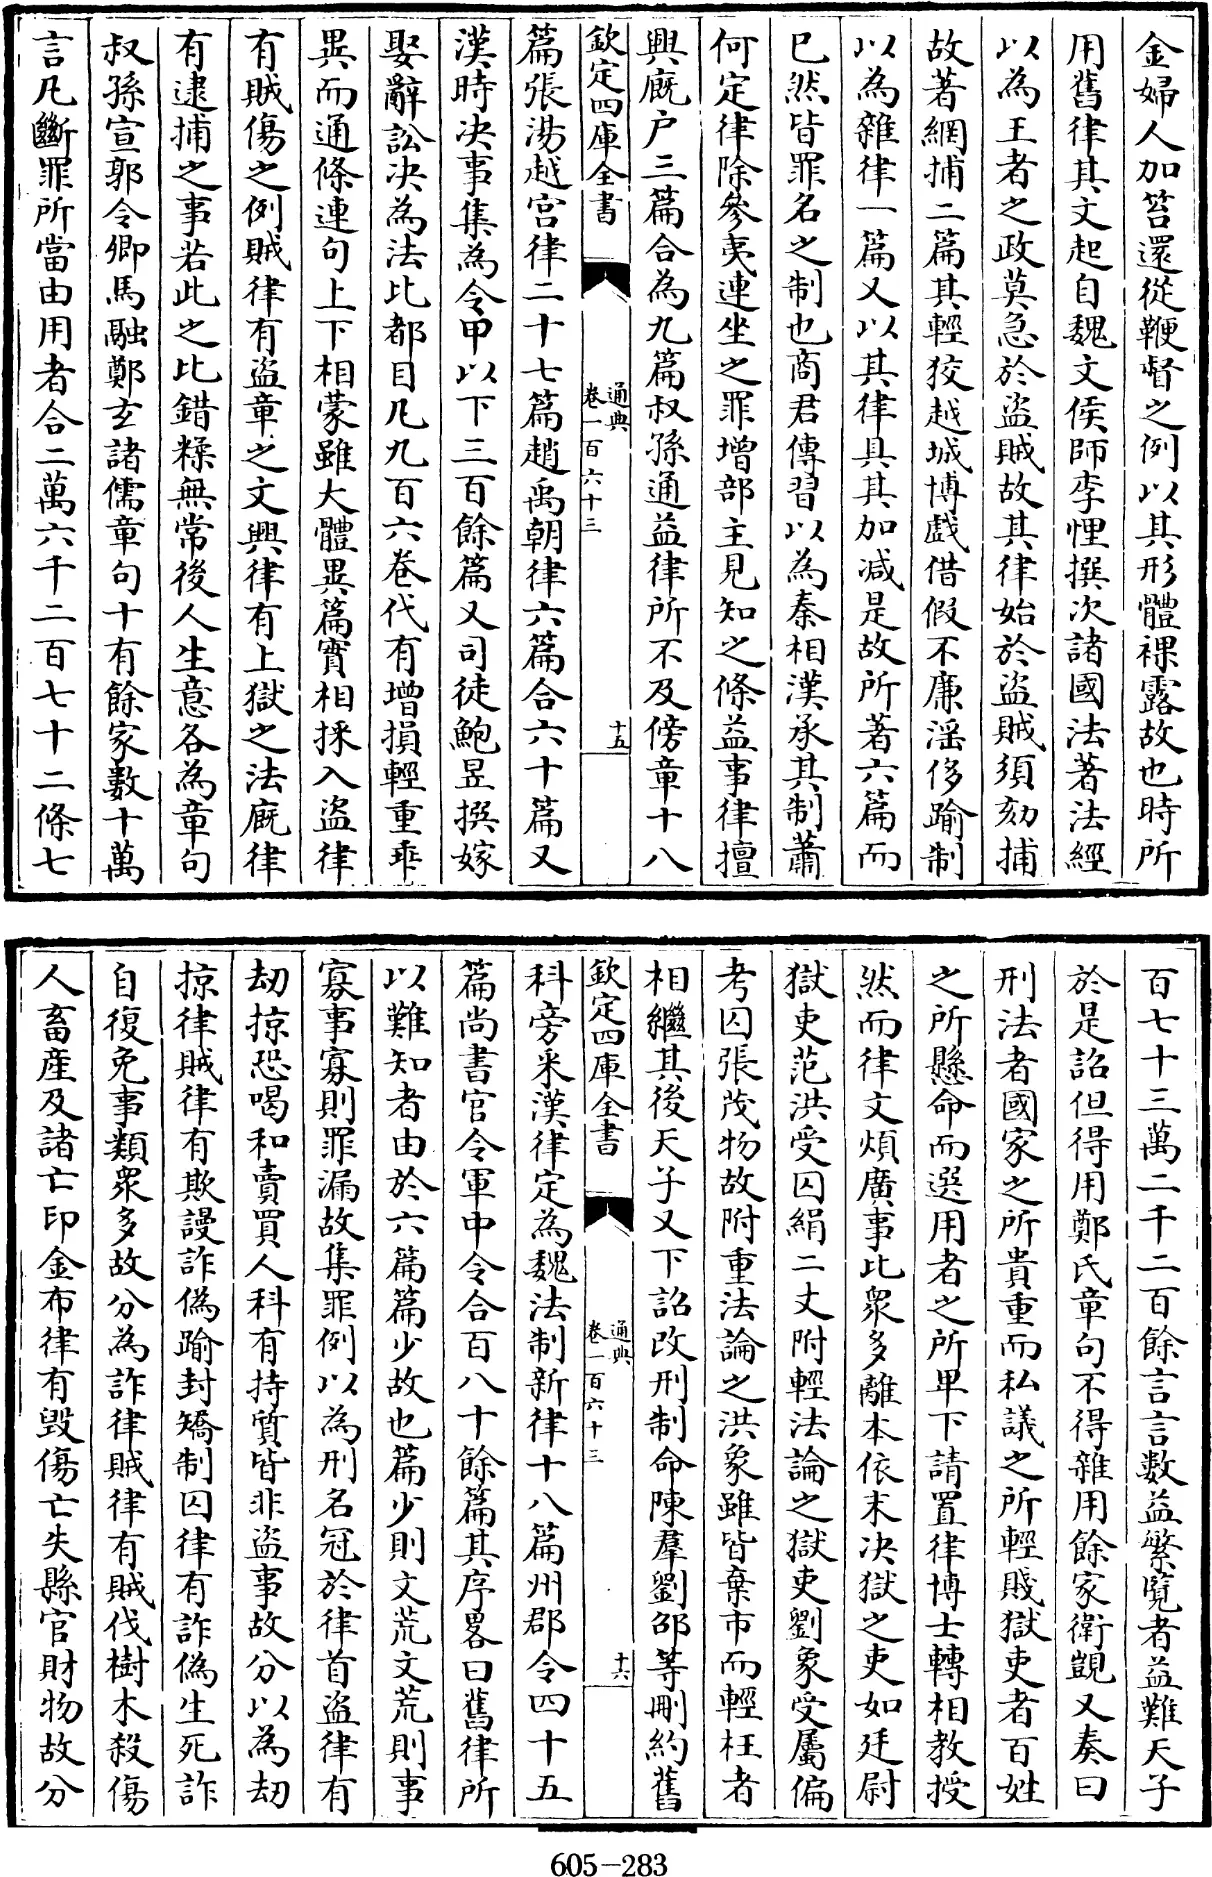 金婦人加笞還從鞭督之例以其形體裸露故也時所
用舊律其文起自魏文侯師李悝撰次諸國法著法經
以為王者之政莫急於盜賊故其律始於盜賊須劾捕
故著網捕二篇其輕狡越城博戲借假不廉淫侈踰制
以為雜律一篇又以其律具其加減是故所著六篇而
已然皆罪名之制也商君傳習以為秦相漢承其制蕭
何定律除參夷連坐之罪增部主見知之條益事律擅
興廐户三篇合為九篇叔孫通益律所不及傍章十八
欽定四庫全書
通典
卷一百六十三
十五
篇張湯越宫律二十七篇趙禹朝律六篇合六十篇又
漢時决事集為令甲以下三百餘篇又司徒鮑昱撰嫁
娶辭訟决為法比都目凡九百六卷代有增損輕重乖
異而通條連句上下相蒙雖大體異篇實相採入盜律
有賊傷之例賊律有盜章之文興律有上獄之法廐律
有逮捕之事若此之比錯糅無常後人生意各為章句
叔孫宣郭令卿馬融鄭玄諸儒章句十有餘家數十萬
言凡斷罪所當由用者合二萬六千二百七十二條七
百七十三萬二千二百餘言言數益繁覽者益難天子
於是詔但得用鄭氏章句不得雜用餘家衛覬又奏曰
刑法者國家之所貴重而私議之所輕賤獄吏者百姓
之所懸命而選用者之所卑下請置律博士轉相教授
然而律文煩廣事比衆多離本依末决獄之吏如廷尉
獄吏范洪受囚絹二丈附輕法論之獄吏劉象受屬偏
考囚張茂物故附重法論之洪象雖皆棄市而輕枉者
相繼其後天子又下詔改刑制命陳羣劉邵等刪約舊
欽定四庫全書
通典
卷一百六十三
十六
科旁采漢律定為魏法制新律十八篇州郡令四十五
篇尚書官令軍中令合百八十餘篇其序畧曰舊律所
以難知者由於六篇篇少故也篇少則文荒文荒則事
寡事寡則罪漏故集罪例以為刑名冠於律首盜律有
刼掠恐喝和賣買人科有持質皆非盜事故分以為刼
掠律賊律有欺謾詐偽踰封矯制囚律有詐偽生死詐
自復免事類衆多故分為詐律賊律有賊伐樹木殺傷
人畜産及諸亡印金布律有毁傷亡失縣官財物故分
605-283